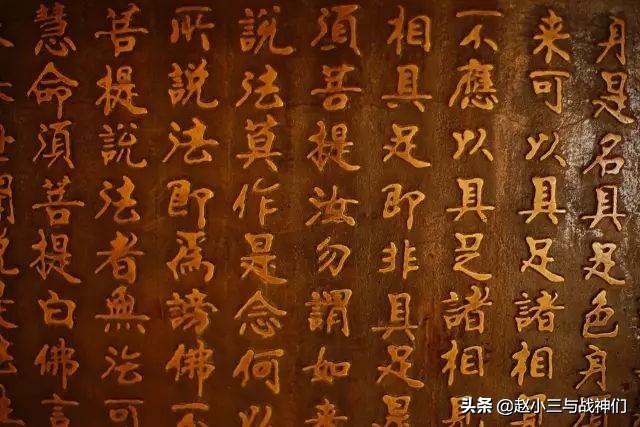 身是名具足色身
来可以具足諸相
不應以具足諸相
相具足即非具足是
須菩提汝勿謂如来
說法莫作是念何以
所說法即爲謗佛不
菩提說法者無法可
慧命須菩提白佛言
头条 @赵小三与战神们